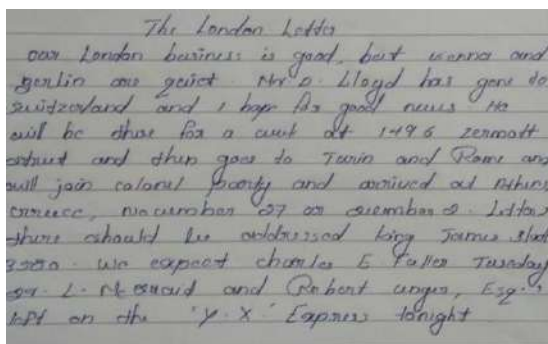 The London Letter
our London business is good, but vienna and
Berlin are quiet. Mr. D. Lloyd has gone to
switzerland and I hope for good news. He
will be there for a week at 1496 zermott
street and then goes to Turin and Rome and
will join colonel parry and arrived at Athens
Greece, November 27 or December 2. Letters
there should be addressed King James
3580. We expect charles E Fuller Tuesday
L. McQuaid and Robert unger, Esq.,
left on the "Y.X." Express tonight